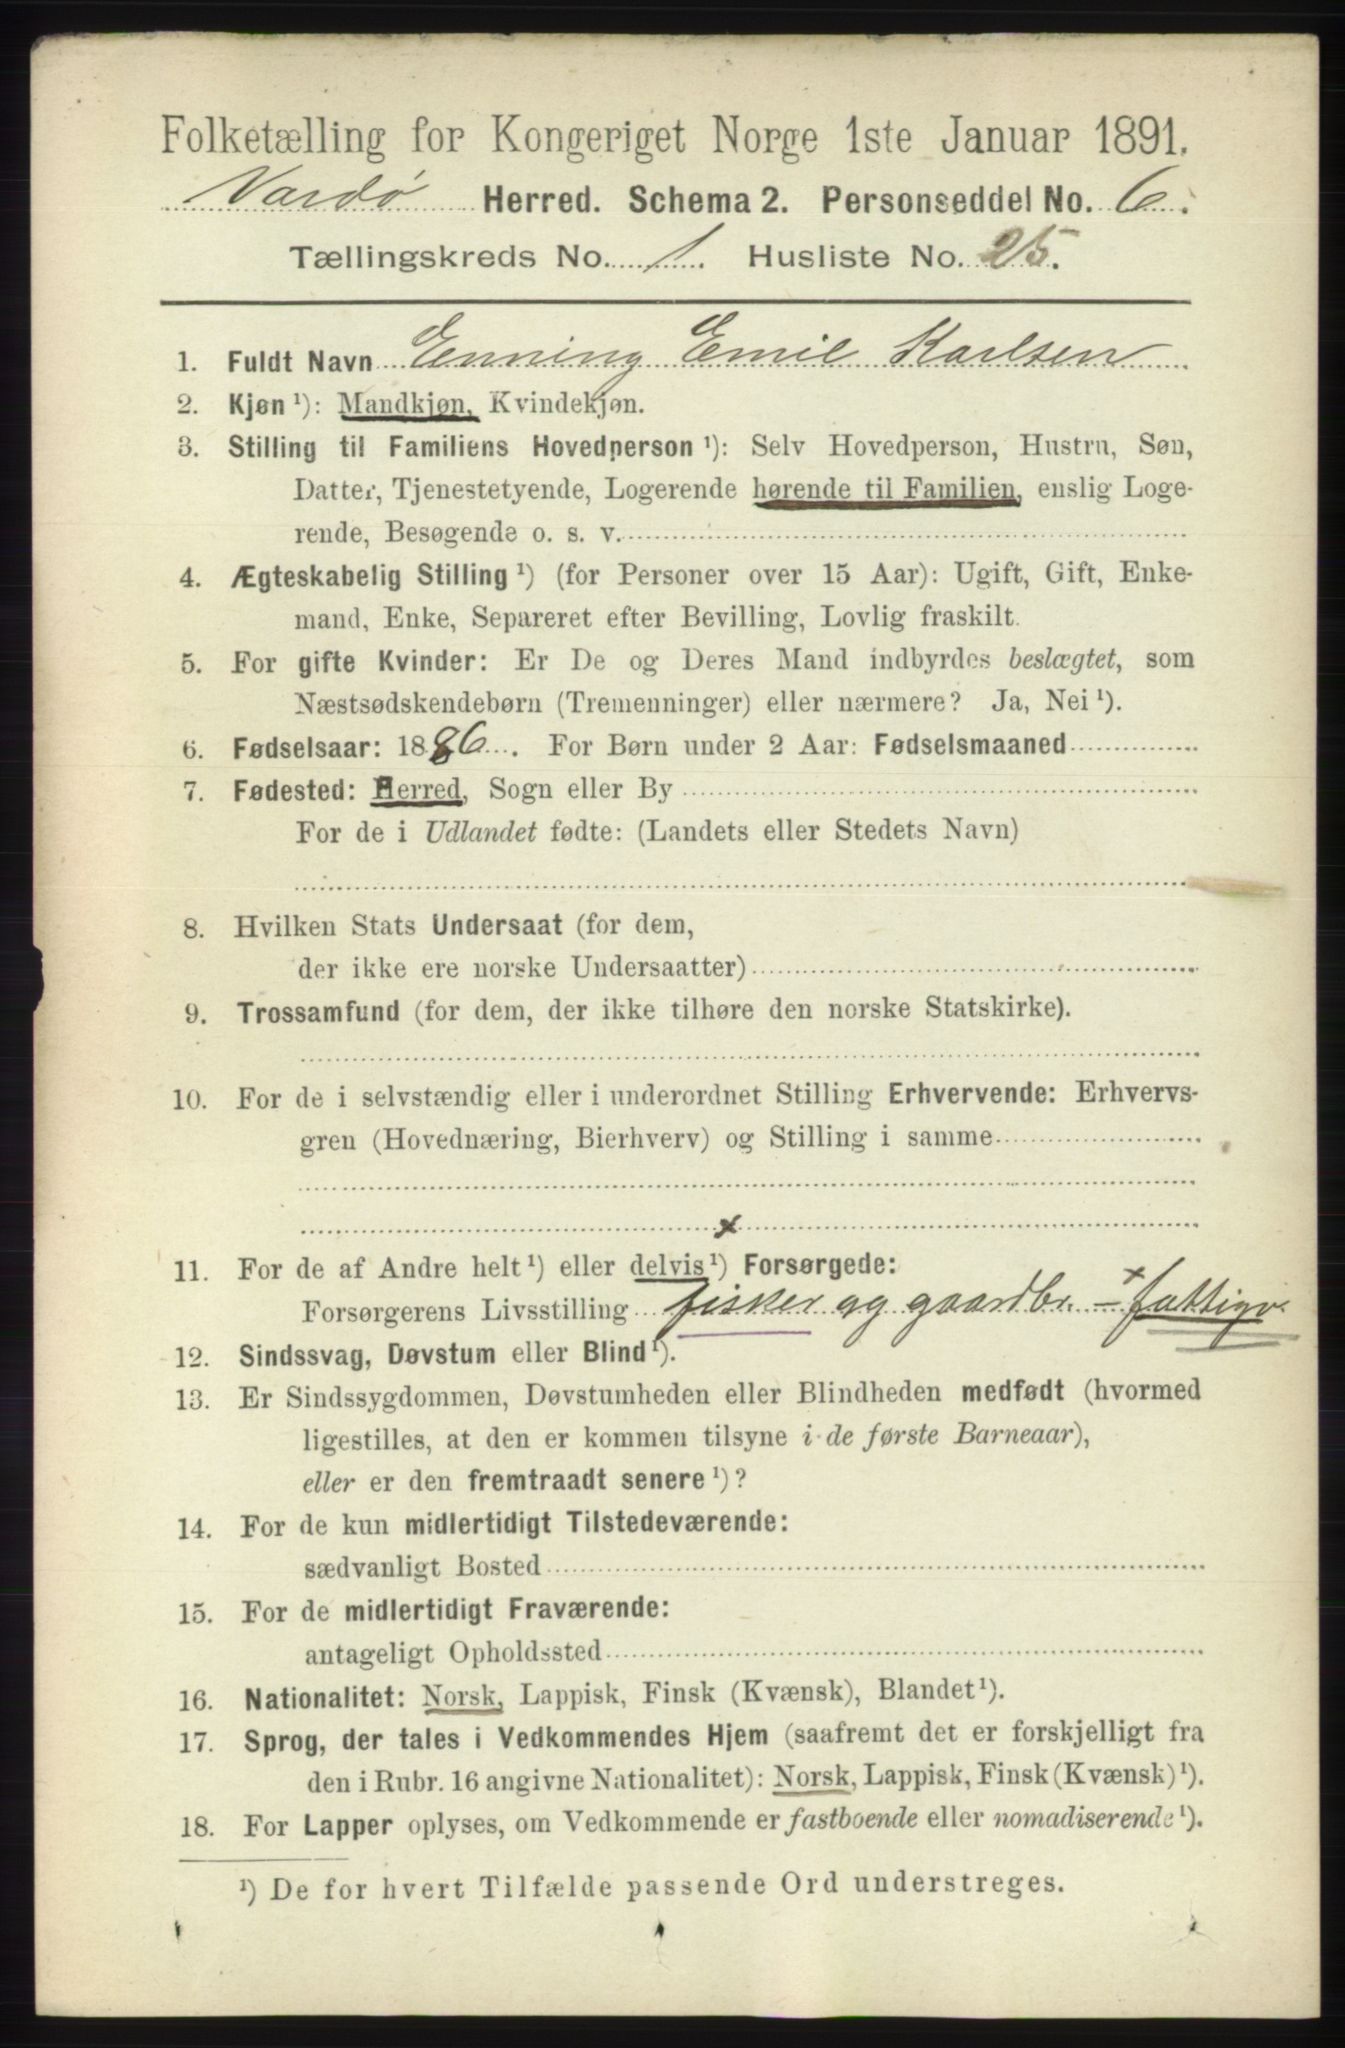 Folketælling for Kongeriget Norge 1ste Januar 1891.
Vardö Herred. Schema 2. Personseddel No. 6.
Tællingskreds No. 1. Husliste No. 25.
1. Fuldt Navn Enning Emil Karlsen
2. Kjøn ¹): Mandkjøn, Kvindekjøn.
3. Stilling til Familiens Hovedperson ¹): Selv Hovedperson, Hustru, Søn,
Datter, Tjenestetyende, Logerende hørende til Familien, enslig Loge-
rende, Besøgende o. s. v.
4. Ægteskabelig Stilling ¹) (for Personer over 15 Aar): Ugift, Gift, Enke-
mand, Enke, Separeret efter Bevilling, Lovlig fraskilt.
5. For gifte Kvinder: Er De og Deres Mand indbyrdes beslægtet, som
Næstsødskendebørn (Tremenninger) eller nærmere? Ja, Nei ¹).
6. Fødselsaar: 1886. For Børn under 2 Aar: Fødselsmaaned
7. Fødested: Herred, Sogn eller By
For de i Udlandet fødte: (Landets eller Stedets Navn)
8. Hvilken Stats Undersaat (for dem,
der ikke ere norske Undersaatter)
9. Trossamfund (for dem, der ikke tilhøre den norske Statskirke).
10. For de i selvstændig eller i underordnet Stilling Erhvervende: Erhvervs-
gren (Hovednæring, Bierhverv) og Stilling i samme
x
11. For de af Andre helt ¹) eller delvis ¹) Forsørgede:
Forsørgerens Livsstilling fisker og gaardbr. – x fattigv.
12. Sindssvag, Døvstum eller Blind ¹).
13. Er Sindssygdommen, Døvstumheden eller Blindheden medfødt (hvormed
ligestilles, at den er kommen tilsyne i de første Barneaar),
eller er den fremtraadt senere ¹)?
14. For de kun midlertidigt Tilstedeværende:
sædvanligt Bosted
15. For de midlertidigt Fraværende:
antageligt Opholdssted
16. Nationalitet: Norsk, Lappisk, Finsk (Kvænsk), Blandet ¹).
17. Sprog, der tales i Vedkommendes Hjem (saafremt det er forskjelligt fra
den i Rubr. 16 angivne Nationalitet): Norsk, Lappisk, Finsk (Kvænsk) ¹).
18. For Lapper oplyses, om Vedkommende er fastboende eller nomadiserende ¹).
¹) De for hvert Tilfælde passende Ord understreges.